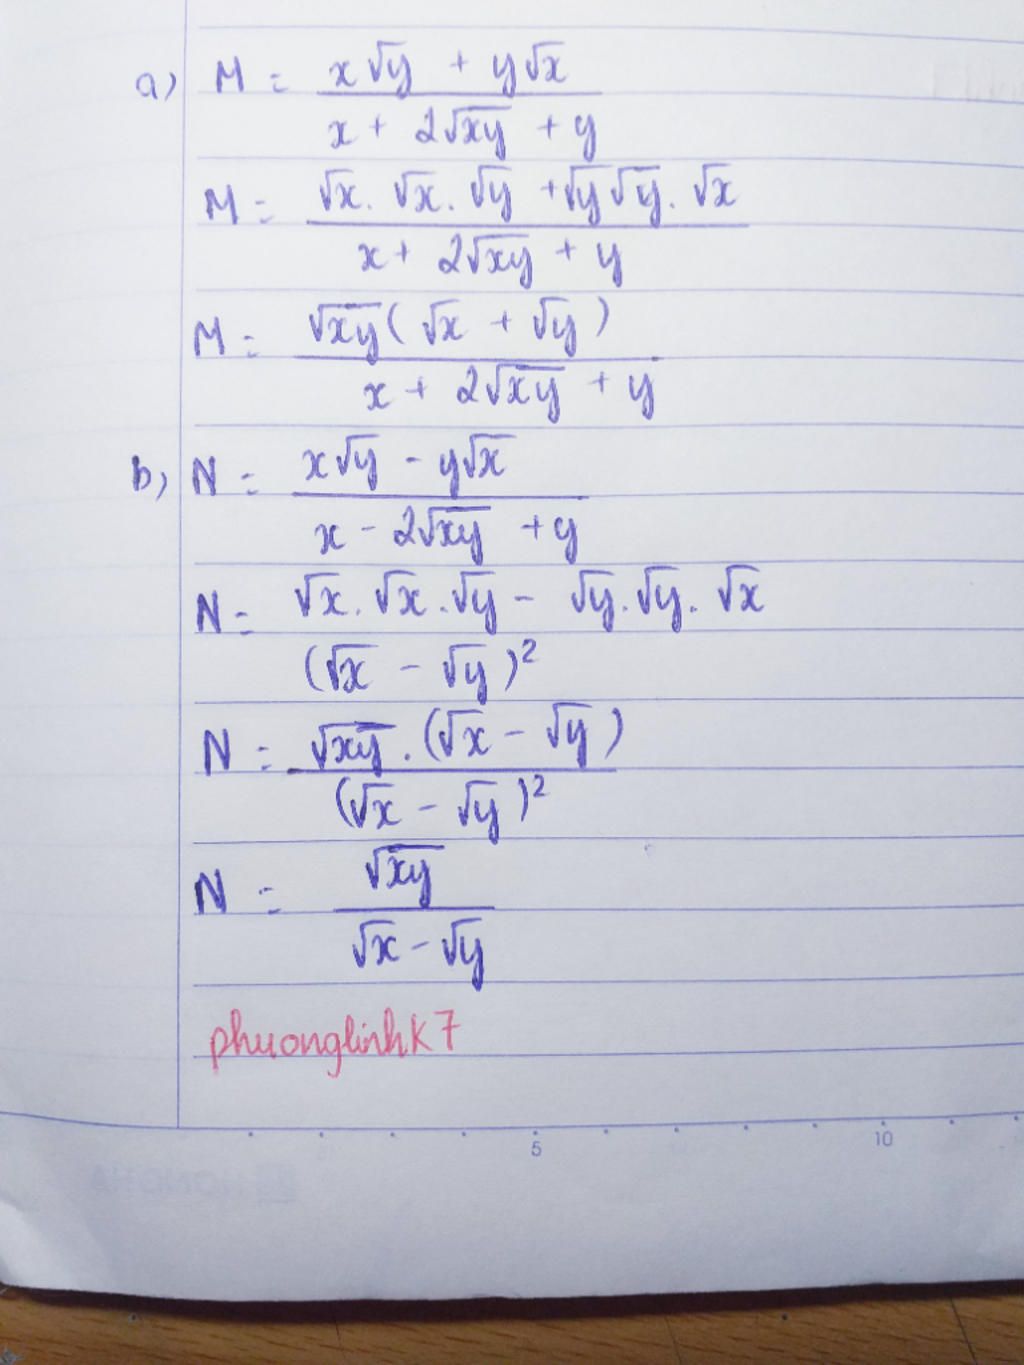 a) M = x√y + y√x
x + 2√xy + y
M = √x. √x. √y + √y √y. √x
x + 2√xy + y
M = √xy ( √x + √y )
x + 2√xy + y
b) N = x√y - y√x
x - 2√xy + y
N = √x. √x. √y - √y. √y. √x
(√x - √y )²
N = √xy . (√x - √y )
(√x - √y )²
N = √xy
√x - √y
phuonglinhk7
5 10